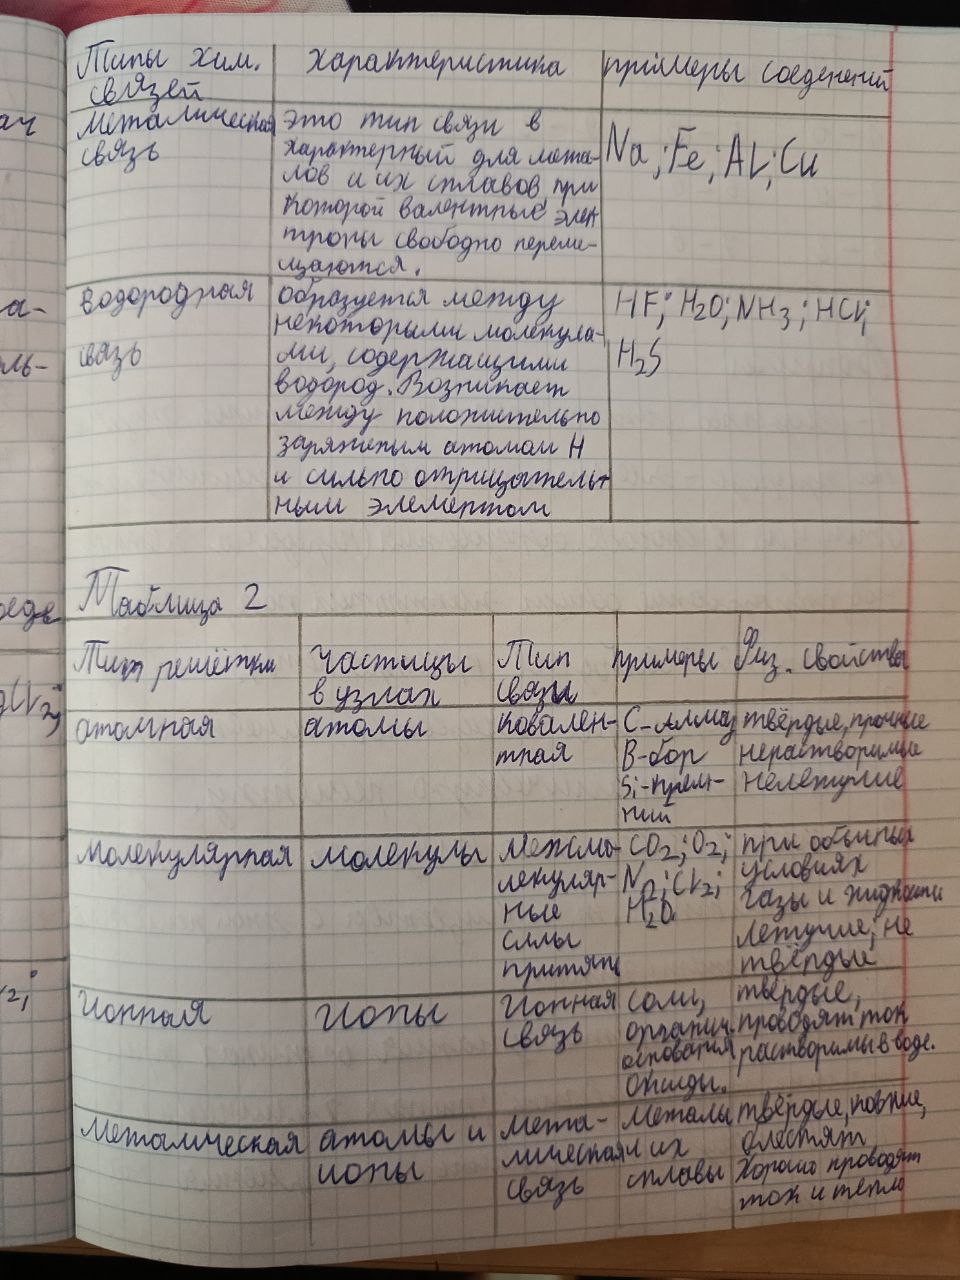 Типы хим. связей
характеристика
примеры соеденений
металическая связь
это тип связи в
характерный для мета-
лов и их сплавов при
которой валентные элек
троны свободно переме-
щаются.
Na; Fe; Al; Cu
водородная
связь
образуется между
некоторыми молекула-
ми, содержащими
водород. Возникает
между положительно
заряженым атомом H
и сильно отрицатель-
ным элементом
HF; H2O; NH3; HCl;
H2S
Таблица 2
Тип решётки
частицы
в узлах
Тип
связи
примеры
Физ. свойства
атомная
атомы
ковален-
тная
C-алмаз
B-бор
Si-крем-
ний
твёрдые, прочные
нерастворимые
нелетучие
молекулярная
молекулы
межмо-
лекуляр-
ные
силы
притяж
CO2; O2;
N2; Cl2;
H2O
при обычных
условиях
газы и жидкости
летучие; не
твёрдые
Ионная
ионы
Ионная
связь
соли,
основания
оксиды.
твёрдые,
проводят ток
растворимы в воде.
Металическая
атомы и
ионы
мета-
лическая
связь
металы
и их
сплавы
твёрдые, ковкие,
блестят,
хорошо проводят
ток и тепло
ач
а-
ль-